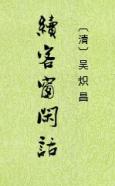 〔清〕吴炽昌
續客窗閑話